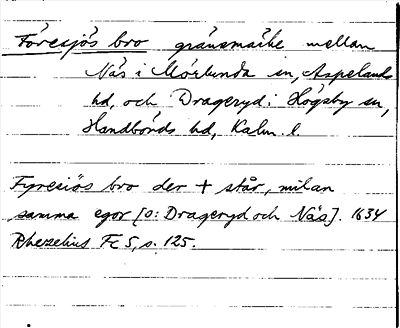 Föresjös bro gränsmärke mellan
Näs i Mörlunda sn, Aspelands
hd, och Drageryd i Högsby sn,
Handbörds hd, Kalm. l.
Fyresiös bro der + står, milan
samma egor [o: Drageryd och Näs]. 1634
Rhezelius Fc 5, s. 125.